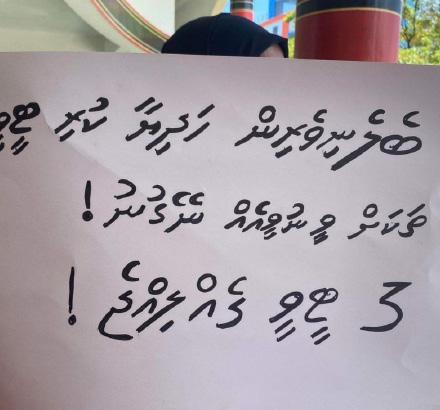 ބެލެނިވެރީން ހަދިޔާ ކުރި ޓީވީ
ތަކަށް ވީނުވީއެއް ނޭގުނު!
3 ޓީވީ ގެއްލިއްޖެ!